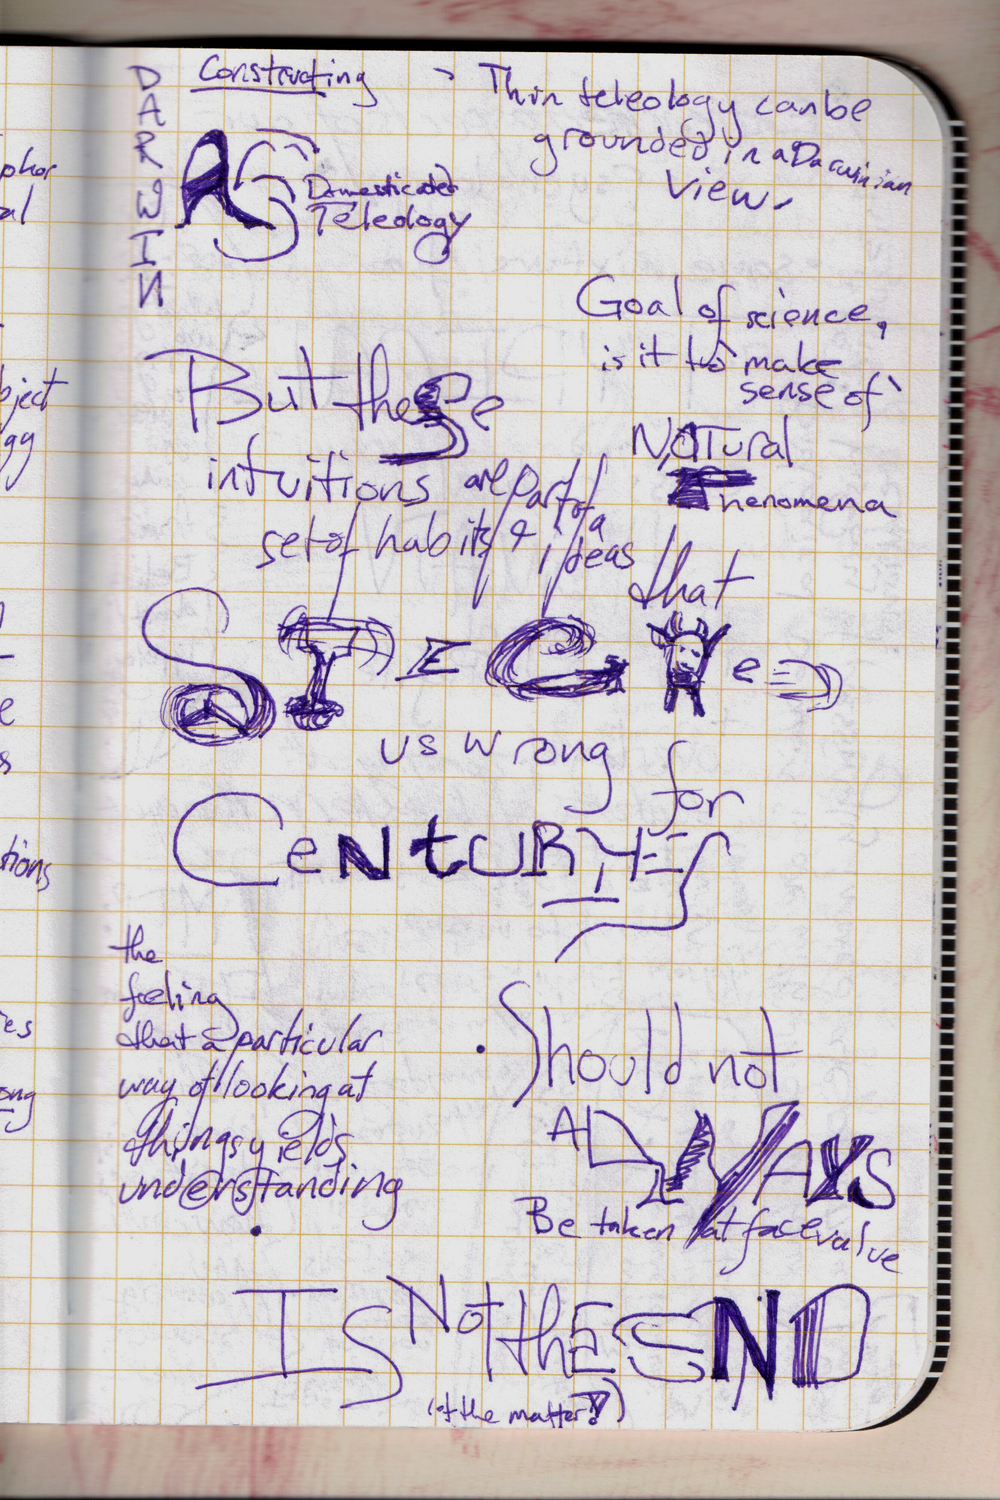 DARWIN
Constructing
As
Domesticated
Teleology
Thin teleology can be
grounded in a Darwinian
view.
Goal of science,
is it to make
sense of
NATural
Phenomena
But these
intuitions are part of a
set of habits & ideas
that
STEERed
us wrong
for
CeNtURYES
the
feeling
that a particular
way of looking at
things yields
understanding
Should not
ALWAYS
Be taken at face value
Is Not thE END
(of the matter!)
phor
al
bject
gy
e
s
tions
es
ong